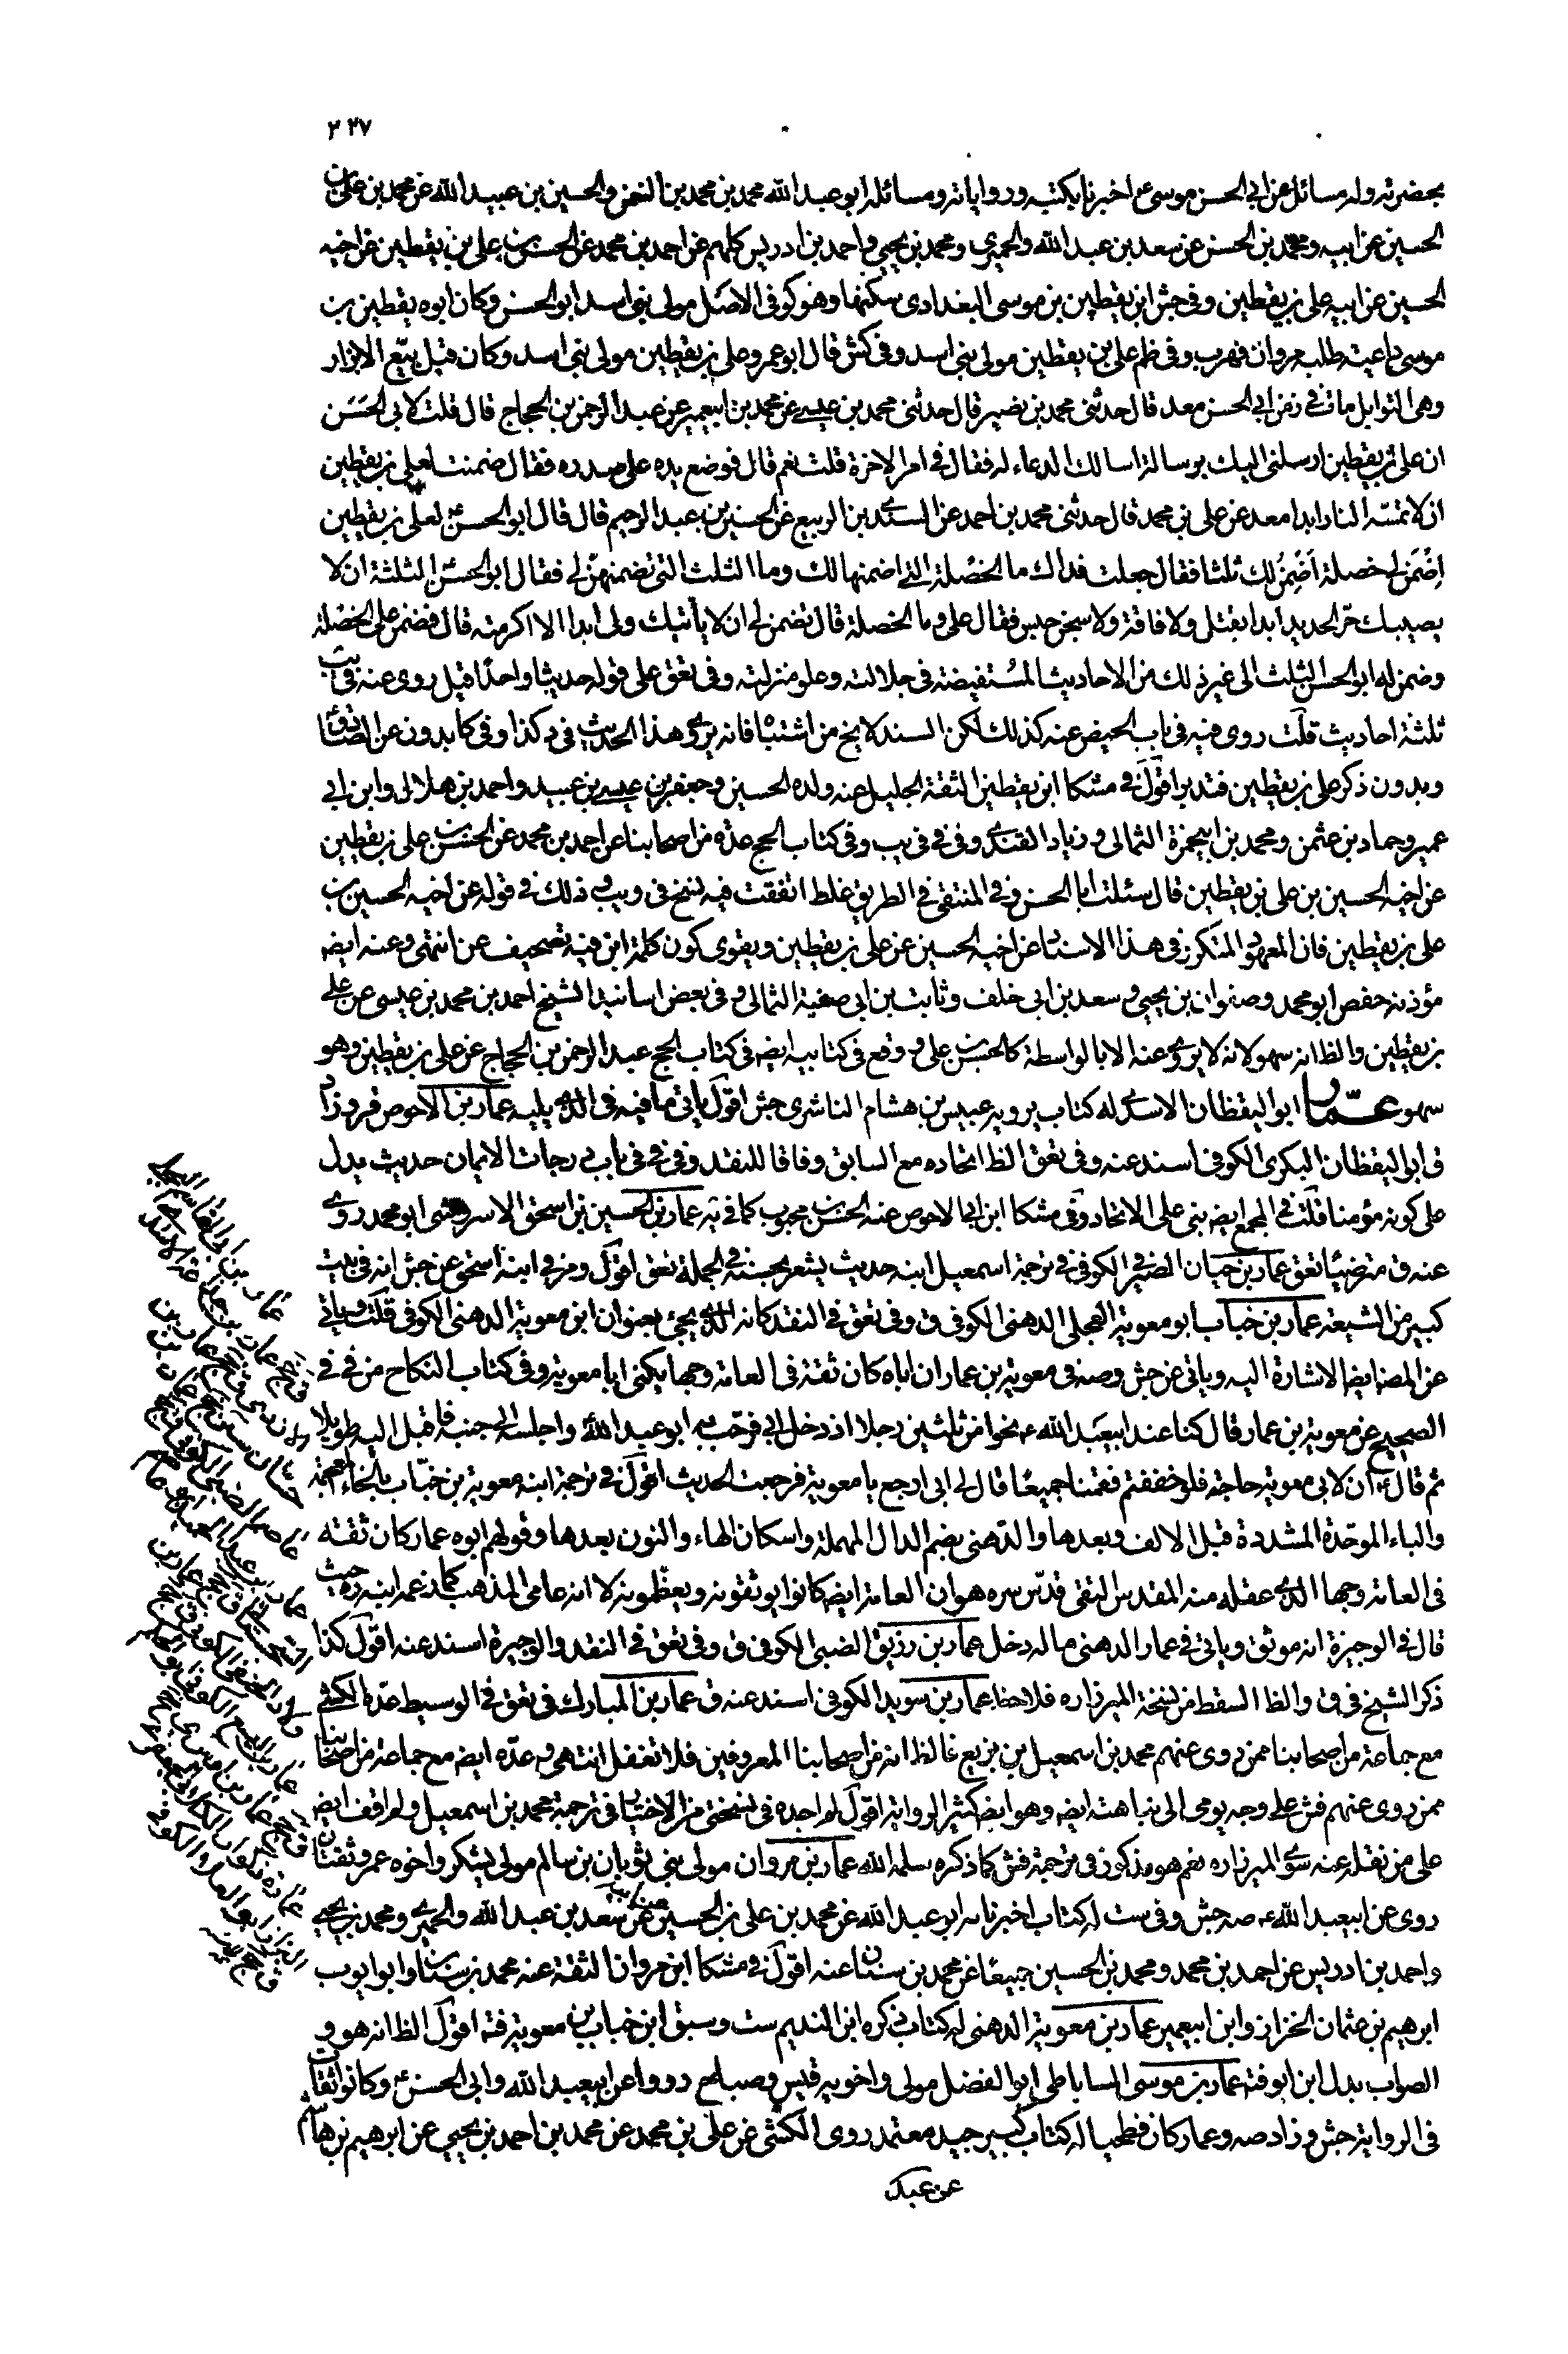 ٢٢٧
بحضرته وله مسائل عن ابي الحسن موسى ع اخبرنا بكتبه ورواياته ومسائله ابو عبد الله محمد بن محمد بن النعمن والحسين بن عبيد الله عن محمد بن علي بن
الحسين عن ابيه ومحمد بن الحسن عن سعد بن عبد الله والحميري ومحمد بن يحيى واحمد بن ادريس كلهم عن احمد بن محمد عن الحسن بن علي بن يقطين عن اخيه
الحسين عن ابيه علي بن يقطين وفي جش ابن يقطين بن موسى البغدادى سكنها وهو كوفى الاصل مولى بنى اسد ابو الحسن وكان ابوه يقطين بن
موسى داعية طلبه مروان فهرب وفي ظم علي بن يقطين مولى بني اسد وفى كش قال ابو عمرو علي بن يقطين مولى بني اسد وكان قبل يبيع الابزار
وهى التوابل مات في زمن ابي الحسن معد قال حدثني محمد بن نصير قال حدثني محمد بن عيسى عن محمد بن ابيعمير عن عبد الرحمن بن الحجاج قال قلت لابى الحسن
ان علي بن يقطين ارسلني اليك برسالة اسالك الدعاء له فقال في امر الاخرة قلت نعم قال فوضع يده على صدره فقال ضمنت لعلي بن يقطين
ان لا تمسه النار ابدا معد عن علي بن محمد قال حدثني محمد بن احمد عن السندي بن الربيع عن الحسين بن عبد الرحيم قال قال ابو الحسن ع لعلي بن يقطين
اضمن لي خصلة اضمن لك ثلثا فقال جعلت فداك ما الخصلة التي اضمنها لك وما الثلث التي تضمنهن لي فقال ابو الحسن ع الثلثة ان لا
يصيبك حر الحديد ابدا بقتل ولا فاقة ولا سجن حبس فقال علي وما الخصلة قال تضمن لي ان لا يأتيك ولى ابدا الا اكرمته قال فضمن علي الخصلة
وضمن له ابو الحسن الثلث الى غير ذلك من الاحاديث المستفيضة فى جلالته وعلو منزلته وفى تعق على قوله حديثا واحدا قيل روى عنه في يب
ثلثة احاديث قلت روى فيه فى باب الحيض عنه كذلك لكن السند لا يخ من اشتباه فانه يروى هذا الحديث في كذا وفى كا بدون عن الصادق ع
وبدون ذكر علي بن يقطين فتدبر اقول في مشكا ابن يقطين الثقة الجليل عنه ولده الحسين وجعفر بن عيسى بن عبيد واحمد بن هلال وابن ابي
عمير وحماد بن عثمن ومحمد بن ابيحمزة الثمالى وزياد القندي وفى في فى يب وفى كتاب الحج عدة من اصحابنا عن احمد بن محمد عن الحسن بن علي بن يقطين
عن اخيه الحسين بن علي بن يقطين قال سئلت ابا الحسن وفي المنتقى في الطريق غلط اتفقت فيه نسخ في ويب و ذلك في قوله عن اخيه الحسين بن
علي بن يقطين فان المعهود المتكرر فى هذا الاسناد عن اخيه الحسين عن علي بن يقطين ويقوى كون كلمة ابن فيه تصحيف عن انتهى وعنه ايضه
مؤذنه حفص ابو محمد وصفوان بن يحيى وسعد بن ابي خلف وثابت بن ابي صفية الثمالى وفى بعض اسانيد الشيخ احمد بن محمد بن عيسى عن علي
بن يقطين والظ انه سهو لانه لا يروي عنه الا بالواسطة كالحسن بن علي ووقع فى كتابيه ايضه فى كتاب الحج عبد الرحمن بن الحجاج عن علي بن يقطين وهو
سهو عمار ابو اليقظان الاسدي له كتاب يرويه عبيس بن هشام الناشرى جش اقول ياتي ما فيه فى الذي يليه عمار بن الاحوص قر وزاد
ق ابو اليقظان البكرى الكوفى اسند عنه وفى تعق الظ اتحاده مع السابق وفاقا للنقد وفى في فى باب درجات الايمان حديث يدل
على كونه مؤمنا قلت في المجمع ايضه بنى على الاتحاد وفي مشكا ابن ابي الاحوص عنه الحسن بن محبوب كما في يه عمار بن الحسين بن اسحق الاسروشني ابو محمد روى
عنه ق مترضيا تعق عمار بن حيان الصيرفي الكوفى في ترجمة اسمعيل ابنه حديث يشعر بحسنه في الجملة تعق اقول ومر في ابنه اسحق عن جش انه في بيت
كبير من الشيعة عمار بن خباب ابو معوية البجلي الدهني الكوفى ق وفى تعق فى النقد كانه الذي يجئ بعنوان ابن معوية الدهنى الكوفى قلت وياتي
عن المصنف ايضا الاشارة اليه وياتي عن جش وصه فى معوية بن عمار ان اباه كان ثقة في العامة وجها يكنى ابا معوية وفي كتاب النكاح من في في
الصحيح عن معوية بن عمار قال كنا عند ابيعبد الله ع نحوا من ثلثين رجلا اذ دخل ابي فرحب به ابو عبد الله ع واجلسه الى جنبه فاقبل اليه طويلا
ثم قال ع ان لابى معوية حاجة فلو خففتم فقمنا جميعا قال لي ابي ارجع يا معوية فرجعت الحديث اقول في ترجمة ابنه معوية بن خباب بالخاء المعجمة
والباء الموحدة المشددة قبل الالف وبعدها والدهنى بضم الدال المهملة واسكان الهاء والنون بعدها وقولهم ابوه عمار كان ثقة
فى العامة وجها الذي عقله منه المقدس التقى قدس سره هو ان العامة ايضه كانوا يوثقونه ويعظمونه لا انه عامى المذهب كما زعمه ابنه ره حيث
قال في الوجيزة انه موثق وياتى فى عمار الدهنى ماله دخل عمار بن رزيق الضبى الكوفى ق وفى تعق في النقد والوجيزة اسند عنه اقول كذا
ذكر الشيخ فى ق والظ السقط من نسخة الميرزا ره فلاحظ عمار بن سويد الكوفى اسند عنه ق عمار بن المبارك فى تعق في الوسيط عده الكشي
مع جماعة من اصحابنا ممن روى عنهم محمد بن اسمعيل بن بزيع فالظ انه من اصحابنا المعروفين فلا تغفل انتهى وعده ايضه مع جماعة من اصحابنا
ممن روى عنهم فش على وجه يومى الى نباهته ايضه وهو ايضه كثير الرواية اقول لم اجده فى نسختى من الاختيار فى ترجمة محمد بن اسمعيل ولم اقف ايضه
على من نقله عنه سوى الميرزا ره نعم هو مذكور فى ترجمة فش كما ذكره سلمه الله عمار بن مروان مولى بني ثوبان بن سالم مولى يشكر واخوه عمرو ثقتان
روى عن ابيعبد الله ع صه جش وفى ست له كتاب اخبرنا به ابو عبد الله عن محمد بن علي بن الحسين عن ابيه عن سعد بن عبد الله والحميري ومحمد بن يحيى
واحمد بن ادريس عن احمد بن محمد ومحمد بن الحسين جميعا عن محمد بن سنان عنه اقول في مشكا ابن مروان الثقة عنه محمد بن سنان وابو ايوب
ابرهيم بن عثمان الخزاز وابن ابيعمير عمار بن معوية الدهنى له كتاب ذكره ابن النديم ست وسبق ابن خباب بن معوية فته اقول الظ انه هو و
الصواب بدل ابن ابو فته عمار بن موسى الساباطى ابو الفضل مولى واخويه قيس وصباح رووا عن ابيعبد الله وابى الحسن ع وكانوا ثقات
فى الرواية جش وزاد صه وعمار كان فطحيا له كتاب كبير جيد معتمد روى الكشى عن علي بن محمد عن محمد بن احمد بن يحيى عن ابرهيم بن هاشم
عن عبد